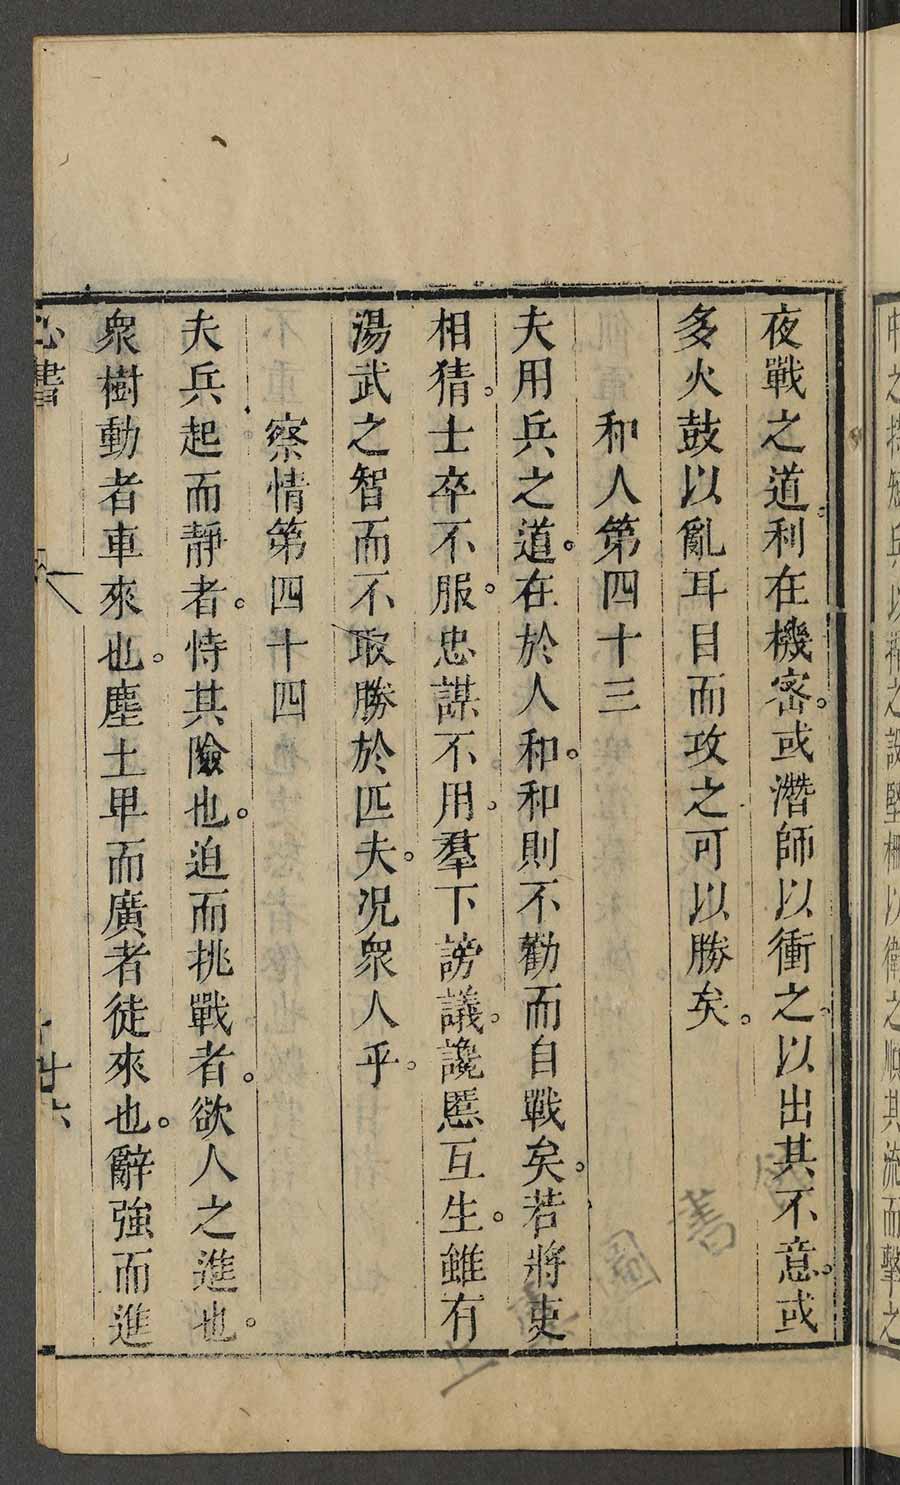 夜戰之道。利在機密。或潛師以衝之。以出其不意。或
多火鼓以亂耳目而攻之可以勝矣。
和人第四十三
夫用兵之道。在於人和。和則不勸而自戰矣。若將吏
相猜。士卒不服。忠謀不用。羣下謗議。讒慝互生。雖有
湯武之智而不取勝於匹夫。況衆人乎。
察情第四十四
夫兵起而靜者。恃其險也。迫而挑戰者。欲人之進也。
衆樹動者車來也。塵土卑而廣者徒來也。辭強而進
心書
廿六